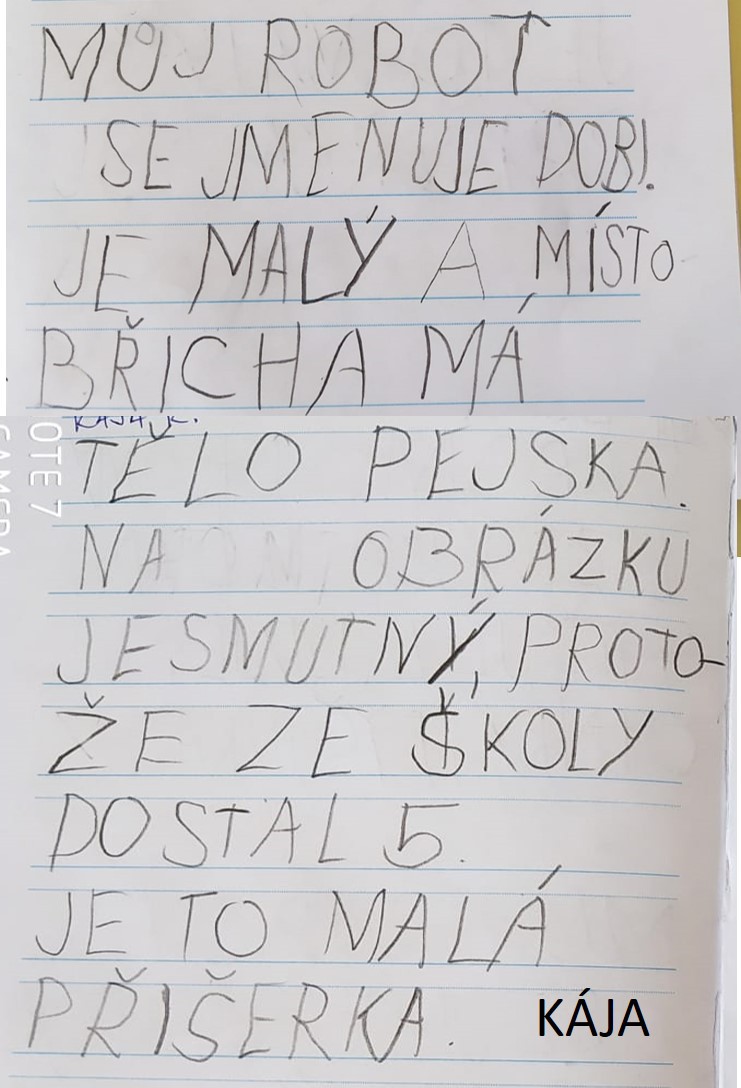 MŮJ ROBOT
SE JMENUJE DOBI.
JE MALÝ A MÍSTO
BŘICHA MÁ
KÁJA K.
TĚLO PEJSKA.
NA OBRÁZKU
JE SMUTNÝ, PROTO-
ŽE ZE ŠKOLY
DOSTAL 5.
JE TO MALÁ
PŘIŠERKA.
KÁJA